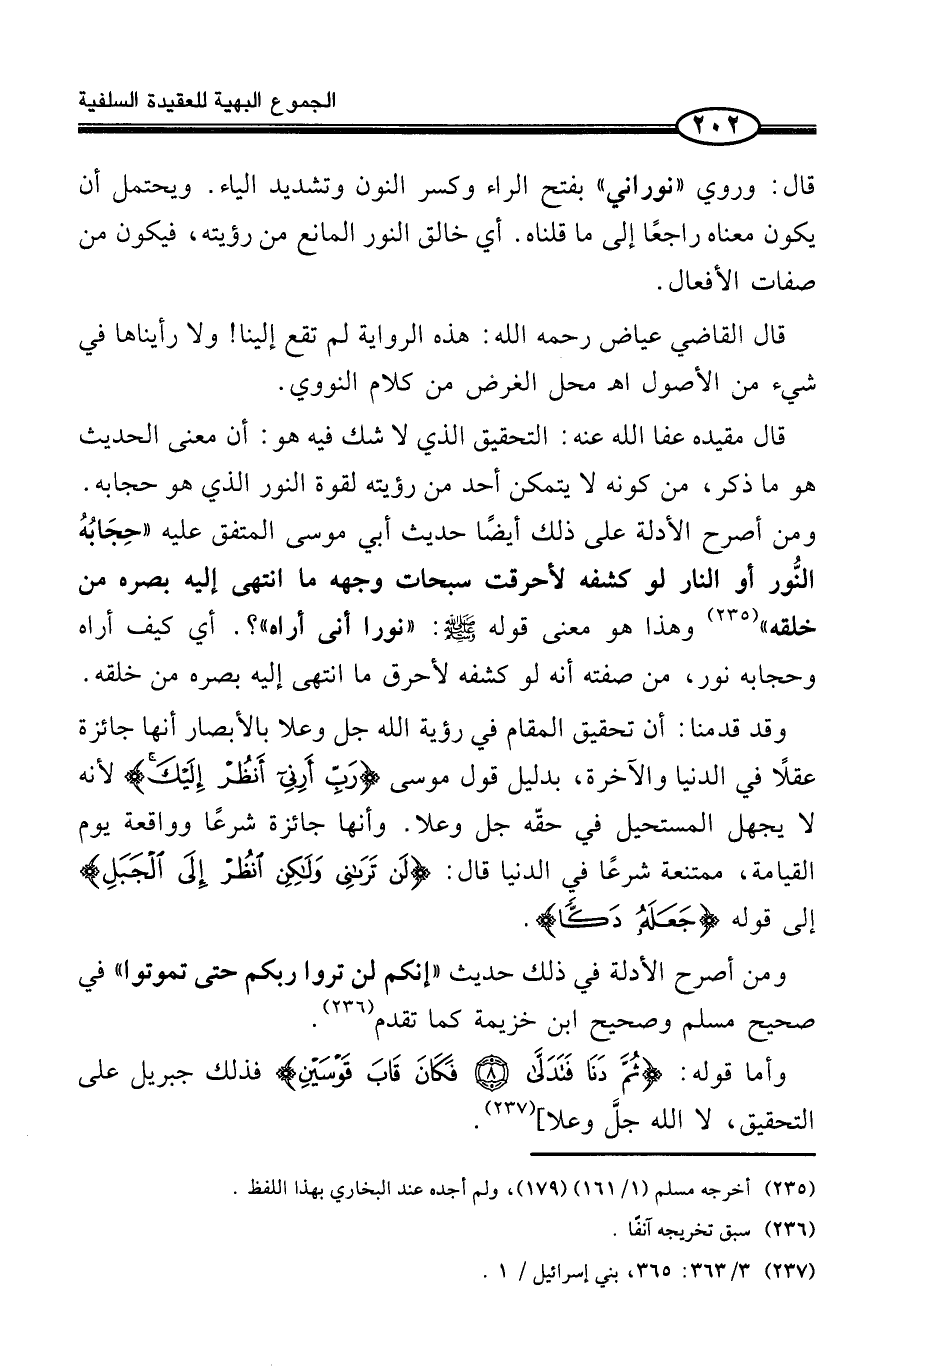 الجموع البهية للعقيدة السلفية
٢٠٢
قال: وروي «نوراني» بفتح الراء وكسر النون وتشديد الياء. ويحتمل أن
يكون معناه راجعًا إلى ما قلناه. أي خالق النور المانع من رؤيته، فيكون من
صفات الأفعال.
قال القاضي عياض رحمه الله: هذه الرواية لم تقع إلينا! ولا رأيناها في
شيء من الأصول اهـ محل الغرض من كلام النووي.
قال مقيده عفا الله عنه: التحقيق الذي لا شك فيه هو: أن معنى الحديث
هو ما ذكر، من كونه لا يتمكن أحد من رؤيته لقوة النور الذي هو حجابه.
ومن أصرح الأدلة على ذلك أيضًا حديث أبي موسى المتفق عليه «حِجَابُهُ
النُّور أو النار لو كشفه لأحرقت سبحات وجهه ما انتهى إليه بصره من
خلقه»(٢٣٥) وهذا هو معنى قوله ﷺ: «نورا أنى أراه»؟. أي كيف أراه
وحجابه نور، من صفته أنه لو كشفه لأحرق ما انتهى إليه بصره من خلقه.
وقد قدمنا: أن تحقيق المقام في رؤية الله جل وعلا بالأبصار أنها جائزة
عقلًا في الدنيا والآخرة، بدليل قول موسى ﴿رَبِّ أَرِنِيٓ أَنظُرۡ إِلَيۡكَۚ﴾ لأنه
لا يجهل المستحيل في حقّه جل وعلا. وأنها جائزة شرعًا وواقعة يوم
القيامة، ممتنعة شرعًا في الدنيا قال: ﴿لَن تَرَىٰنِي وَلَٰكِنِ ٱنظُرۡ إِلَى ٱلۡجَبَلِ﴾
إلى قوله ﴿جَعَلَهُۥ دَكّٗا﴾.
ومن أصرح الأدلة في ذلك حديث «إنكم لن تروا ربكم حتى تموتوا» في
صحيح مسلم وصحيح ابن خزيمة كما تقدم(٢٣٦).
وأما قوله: ﴿ثُمَّ دَنَا فَتَدَلَّىٰ ٨ فَكَانَ قَابَ قَوۡسَيۡنِ﴾ فذلك جبريل على
التحقيق، لا الله جلَّ وعلا](٢٣٧).
(٢٣٥) أخرجه مسلم (١/ ١٦١) (١٧٩)، ولم أجده عند البخاري بهذا اللفظ .
(٢٣٦) سبق تخريجه آنفًا .
(٢٣٧) ٣/ ٣٦٣: ٣٦٥، بني إسرائيل / ١ .